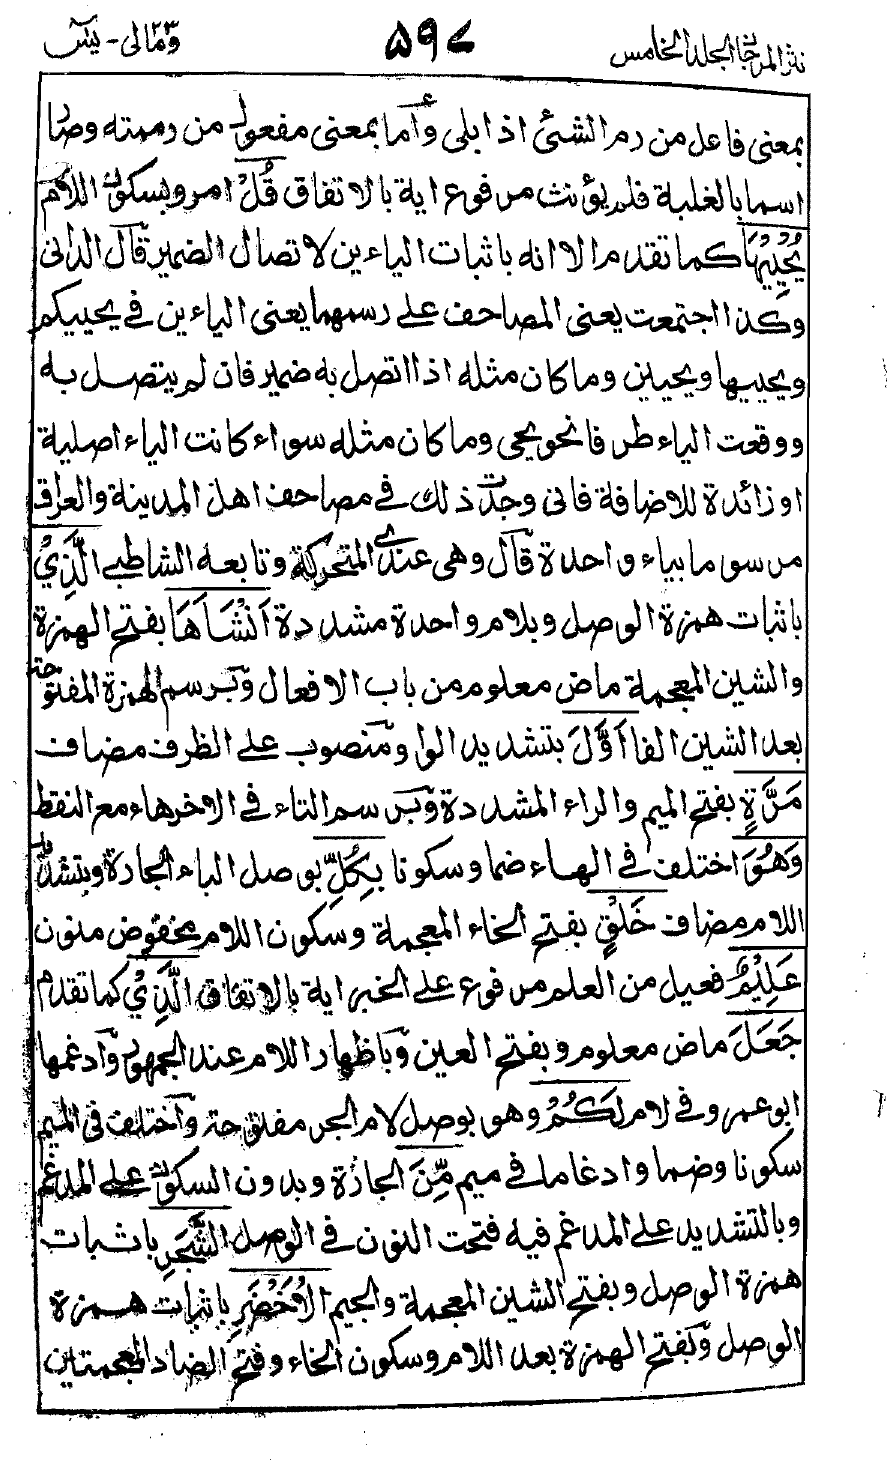 نثر المرجان المجلد الخامس ۵۹۷ ومالی ۲۳ - یٰسٓ
بمعنى فاعل من رم الشئ اذا بلى وأما بمعنى مفعول من رممته وصار
اسما بالغلبة فلم يؤنث مرفوع اية بالاتفاق قُلْ امر وبسكون اللام
يُحْيِيْهَا كما تقدم الا انه باثبات الياءين لاتصال الضمير قال الدانى
وكذا اجتمعت يعنى المصاحف على رسمهما يعنى الياءين فى يحييكم
ويحييها ويحيين وما كان مثله اذا اتصل به ضمير فان لم يتصل به
ووقعت الياء طرفا نحو يحى وما كان مثله سواء كانت الياء اصلية
او زائدة للاضافة فانى وجدت ذلك فى مصاحف اهل المدينة والعراق
مرسوما بياء واحدة قال وهى عندى المتحركة وتابعه الشاطبى الَّذِيْ
باثبات همزة الوصل وبلام واحدة مشددة اَنْشَاَهَا بفتح الهمزة
والشين المعجمة ماض معلوم من باب الافعال وبرسم الهمزة المفتوحة
بعد الشين الفا اَوَّلَ بتشديد الواو ومنصوب على الظرف مضاف
مَرَّةٍ بفتح الميم والراء المشددة وبرسم التاء فى الاخر هاء مع النقط
وَهُوَ اختلف فى الهاء ضما وسكونا بِكُلِّ بوصل الباء الجارة وبتشديد
اللام مضاف خَلْقٍ بفتح الخاء المعجمة وسكون اللام مخفوض منون
عَلِيْمٌ فعيل من العلم مرفوع على الخبر اية بالاتفاق الَّذِيْ كما تقدم
جَعَلَ ماض معلوم وبفتح العين وباظهار اللام عند الجمهور وادغمها
ابو عمرو فى لام لَكُمْ وهو بوصل لام الجر مفتوحة واختلف فى الميم
سكونا وضما وادغاما فى ميم مِّنَ الجارة وبدون السكون على المدغم
وبالتشديد على المدغم فيه فتحت النون فى الوصل الشَّجَرِ باثبات
همزة الوصل وبفتح الشين المعجمة والجيم الْاَخْضَرِ باثبات همزة
الوصل وبفتح الهمزة بعد اللام وسكون الخاء وفتح الضاد المعجمتين